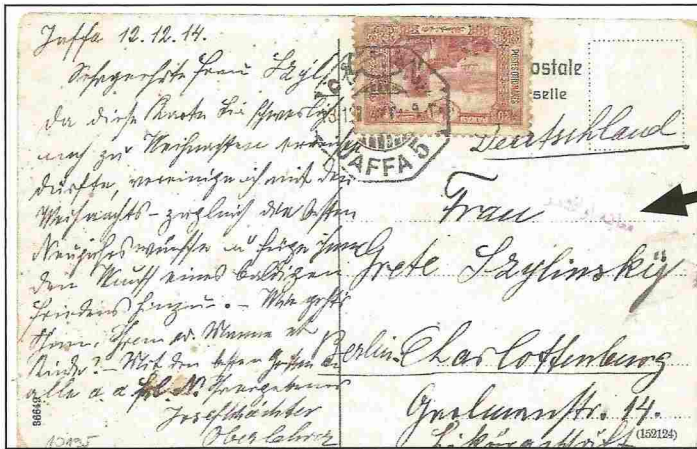 Jaffa 12.12.14.
Sehrgeehrte Frau
da diese Karte Sie schwerlich
noch zu Weihnachten erreichen
dürfte, vereinige ich mit den
Weihnachts- zugleich die besten
Neujahrswünsche u füge ihnen
den Wunsch eines baldigen
Friedens hinzu. – Wie geht's
Ihnen, Ihrem Manne
Kinde? – Mit den besten Grüßen
alle
Oberlehrer
10135
POSTES OTTOMANES
JAFFA 5
ostale
Deutschland
Frau
Grete Szylinsky
Berlin-Charlottenburg
Grolmanstr. 14.
Likörgeschäft
(152124)